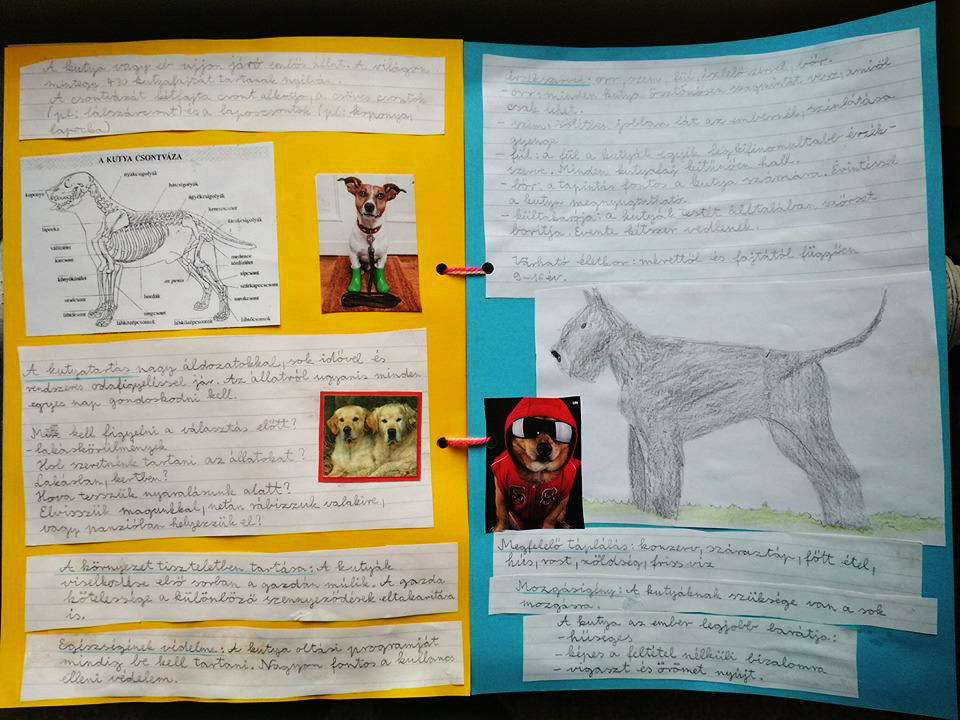 A kutya vagy eb ujjon járó emlős állat. A világon
mintegy 430 kutyafajtát tartanak nyilván.
A csontvázát kétfajta csont alkotja, a csöves csontok
(pl: lábszárcsont) és a laposcsontok (pl: koponya,
lapocka)
A KUTYA CSONTVÁZA
nyakcsigolyák
koponya
hátcsigolyák
ágyékcsigolyák
keresztcsont
farokcsigolyák
lapocka
vállízület
karcsont
medence
könyökízület
az penis
sípcsont
szárkapocscsont
bordák
sarokcsont
singcsont
lábtőcsontok
lábközépcsontok
lábközépcsontok
lábtőcsontok
A kutyatartás nagy áldozatokkal, sok idővel és
rendszeres odafigyeléssel jár. Az állatról ugyanis minden
egyes nap gondoskodni kell.
Mire kell figyelni a választás előtt?
- lakáskörülmények
Hol szeretnénk tartani az állatokat?
Lakásban, kertben?
Hova tesszük nyaralásunk alatt?
Elvisszük magunkkal, netán rábízzuk valakire,
vagy panzióban helyezzük el?
A környezet tiszteletben tartása: A kutyák
viselkedése első sorban a gazdán múlik. A gazda
kötelessége a különböző szennyeződések eltakarítása
is.
Egészségének védelme: A kutya oltási programját
mindig be kell tartani. Nagyon fontos a kullancs
elleni védelem.
Érzékszervei: orr, szem, fül, ízlelő szerv, bőr.
- orr: minden kutya ösztönösen szagmintát vesz, amiről
csak lehet.
- szem: sötétben jobban lát az embernél, színlátása
gyenge.
- fül: a fül a kutyák egyik legkifinomultabb érzék-
szerve. Minden kutyafaj kitűnően hall.
- bőr: a tapintás fontos a kutya számára. Érintéssel
a kutya megnyugtatható.
- kültakarója: a kutyák testét általában szőrzet
borítja. Évente kétszer vedlenek.
Várható életkor: mérettől és fajtától függően
9-16 év.
Megfelelő táplálás: konzerv, száraztáp, főtt étel,
hús, rost, zöldség, friss víz
Mozgásigény: A kutyáknak szüksége van a sok
mozgásra.
A kutya az ember legjobb barátja:
- hűséges
- képes a feltétel nélküli bizalomra
- vigaszt és örömet nyújt.